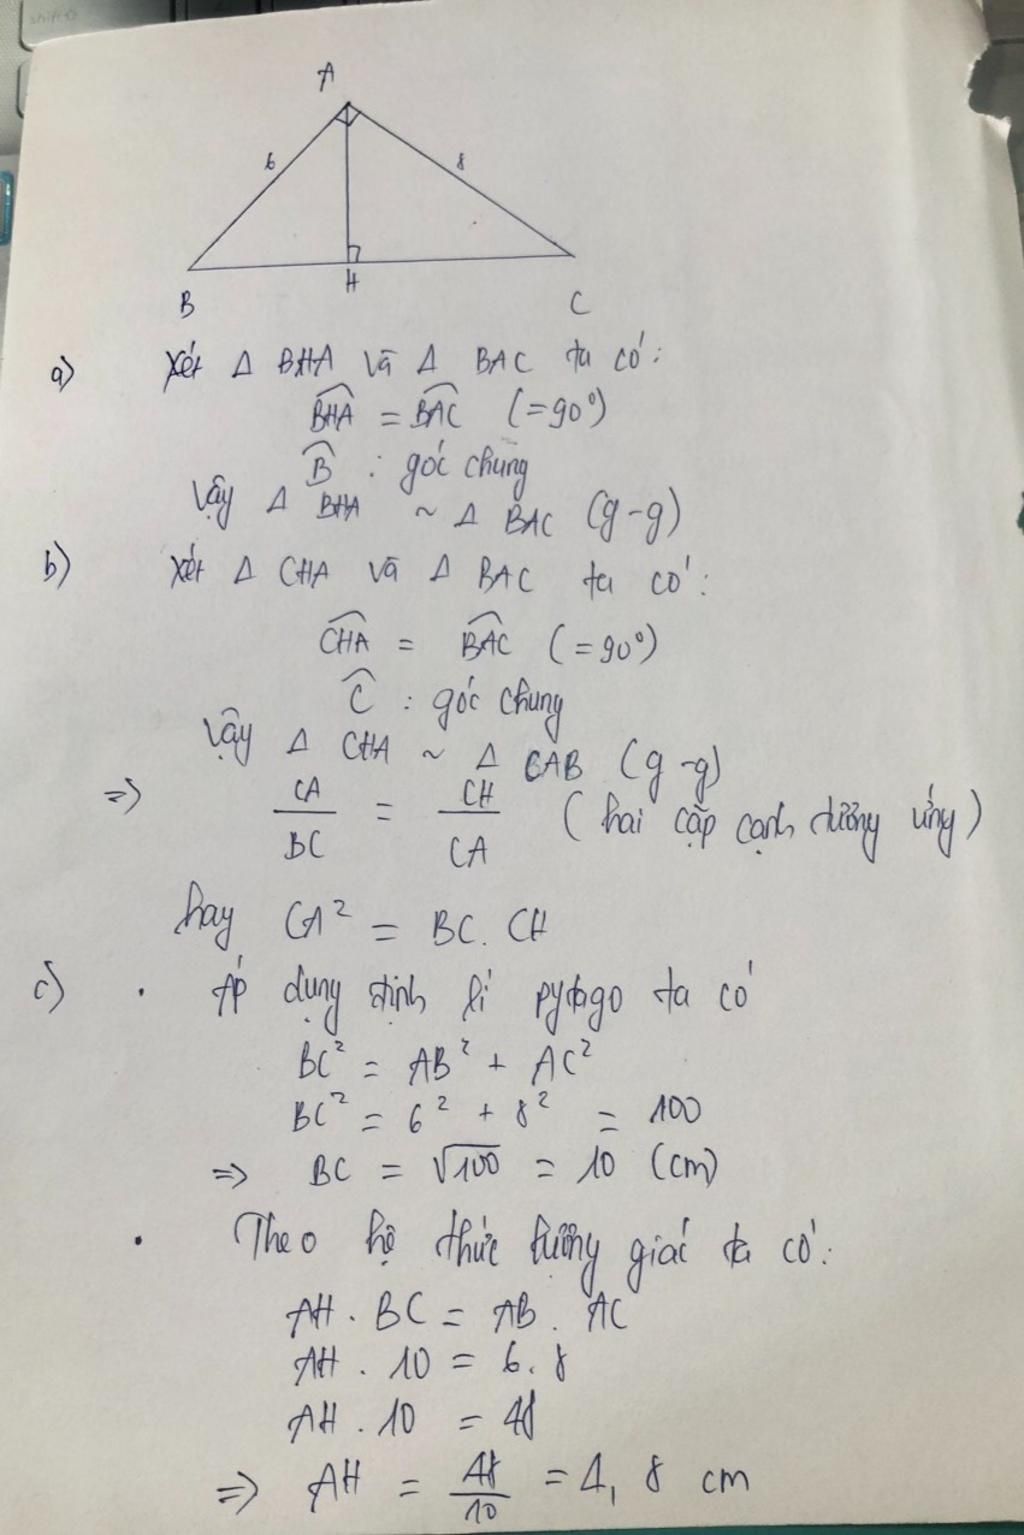 shift
A
6
8
B
H
C
a) Xét Δ BHA và Δ BAC ta có:
$\widehat{BHA} = \widehat{BAC}$ (=90°)
$\widehat{B}$ : góc chung
Vậy Δ BHA ~ Δ BAC (g-g)
b) Xét Δ CHA và Δ BAC ta có:
$\widehat{CHA} = \widehat{BAC}$ (=90°)
$\widehat{C}$ : góc chung
Vậy Δ CHA ~ Δ CAB (g-g)
=> $\frac{CA}{BC} = \frac{CH}{CA}$ (hai cặp cạnh tương ứng)
hay CA² = BC. CH
c) · Áp dụng định lí pytago ta có
BC² = AB² + AC²
BC² = 6² + 8² = 100
=> BC = √100 = 10 (cm)
· Theo hệ thức lượng giác ta có:
AH . BC = AB . AC
AH . 10 = 6. 8
AH . 10 = 48
=> AH = $\frac{48}{10}$ = 4, 8 cm